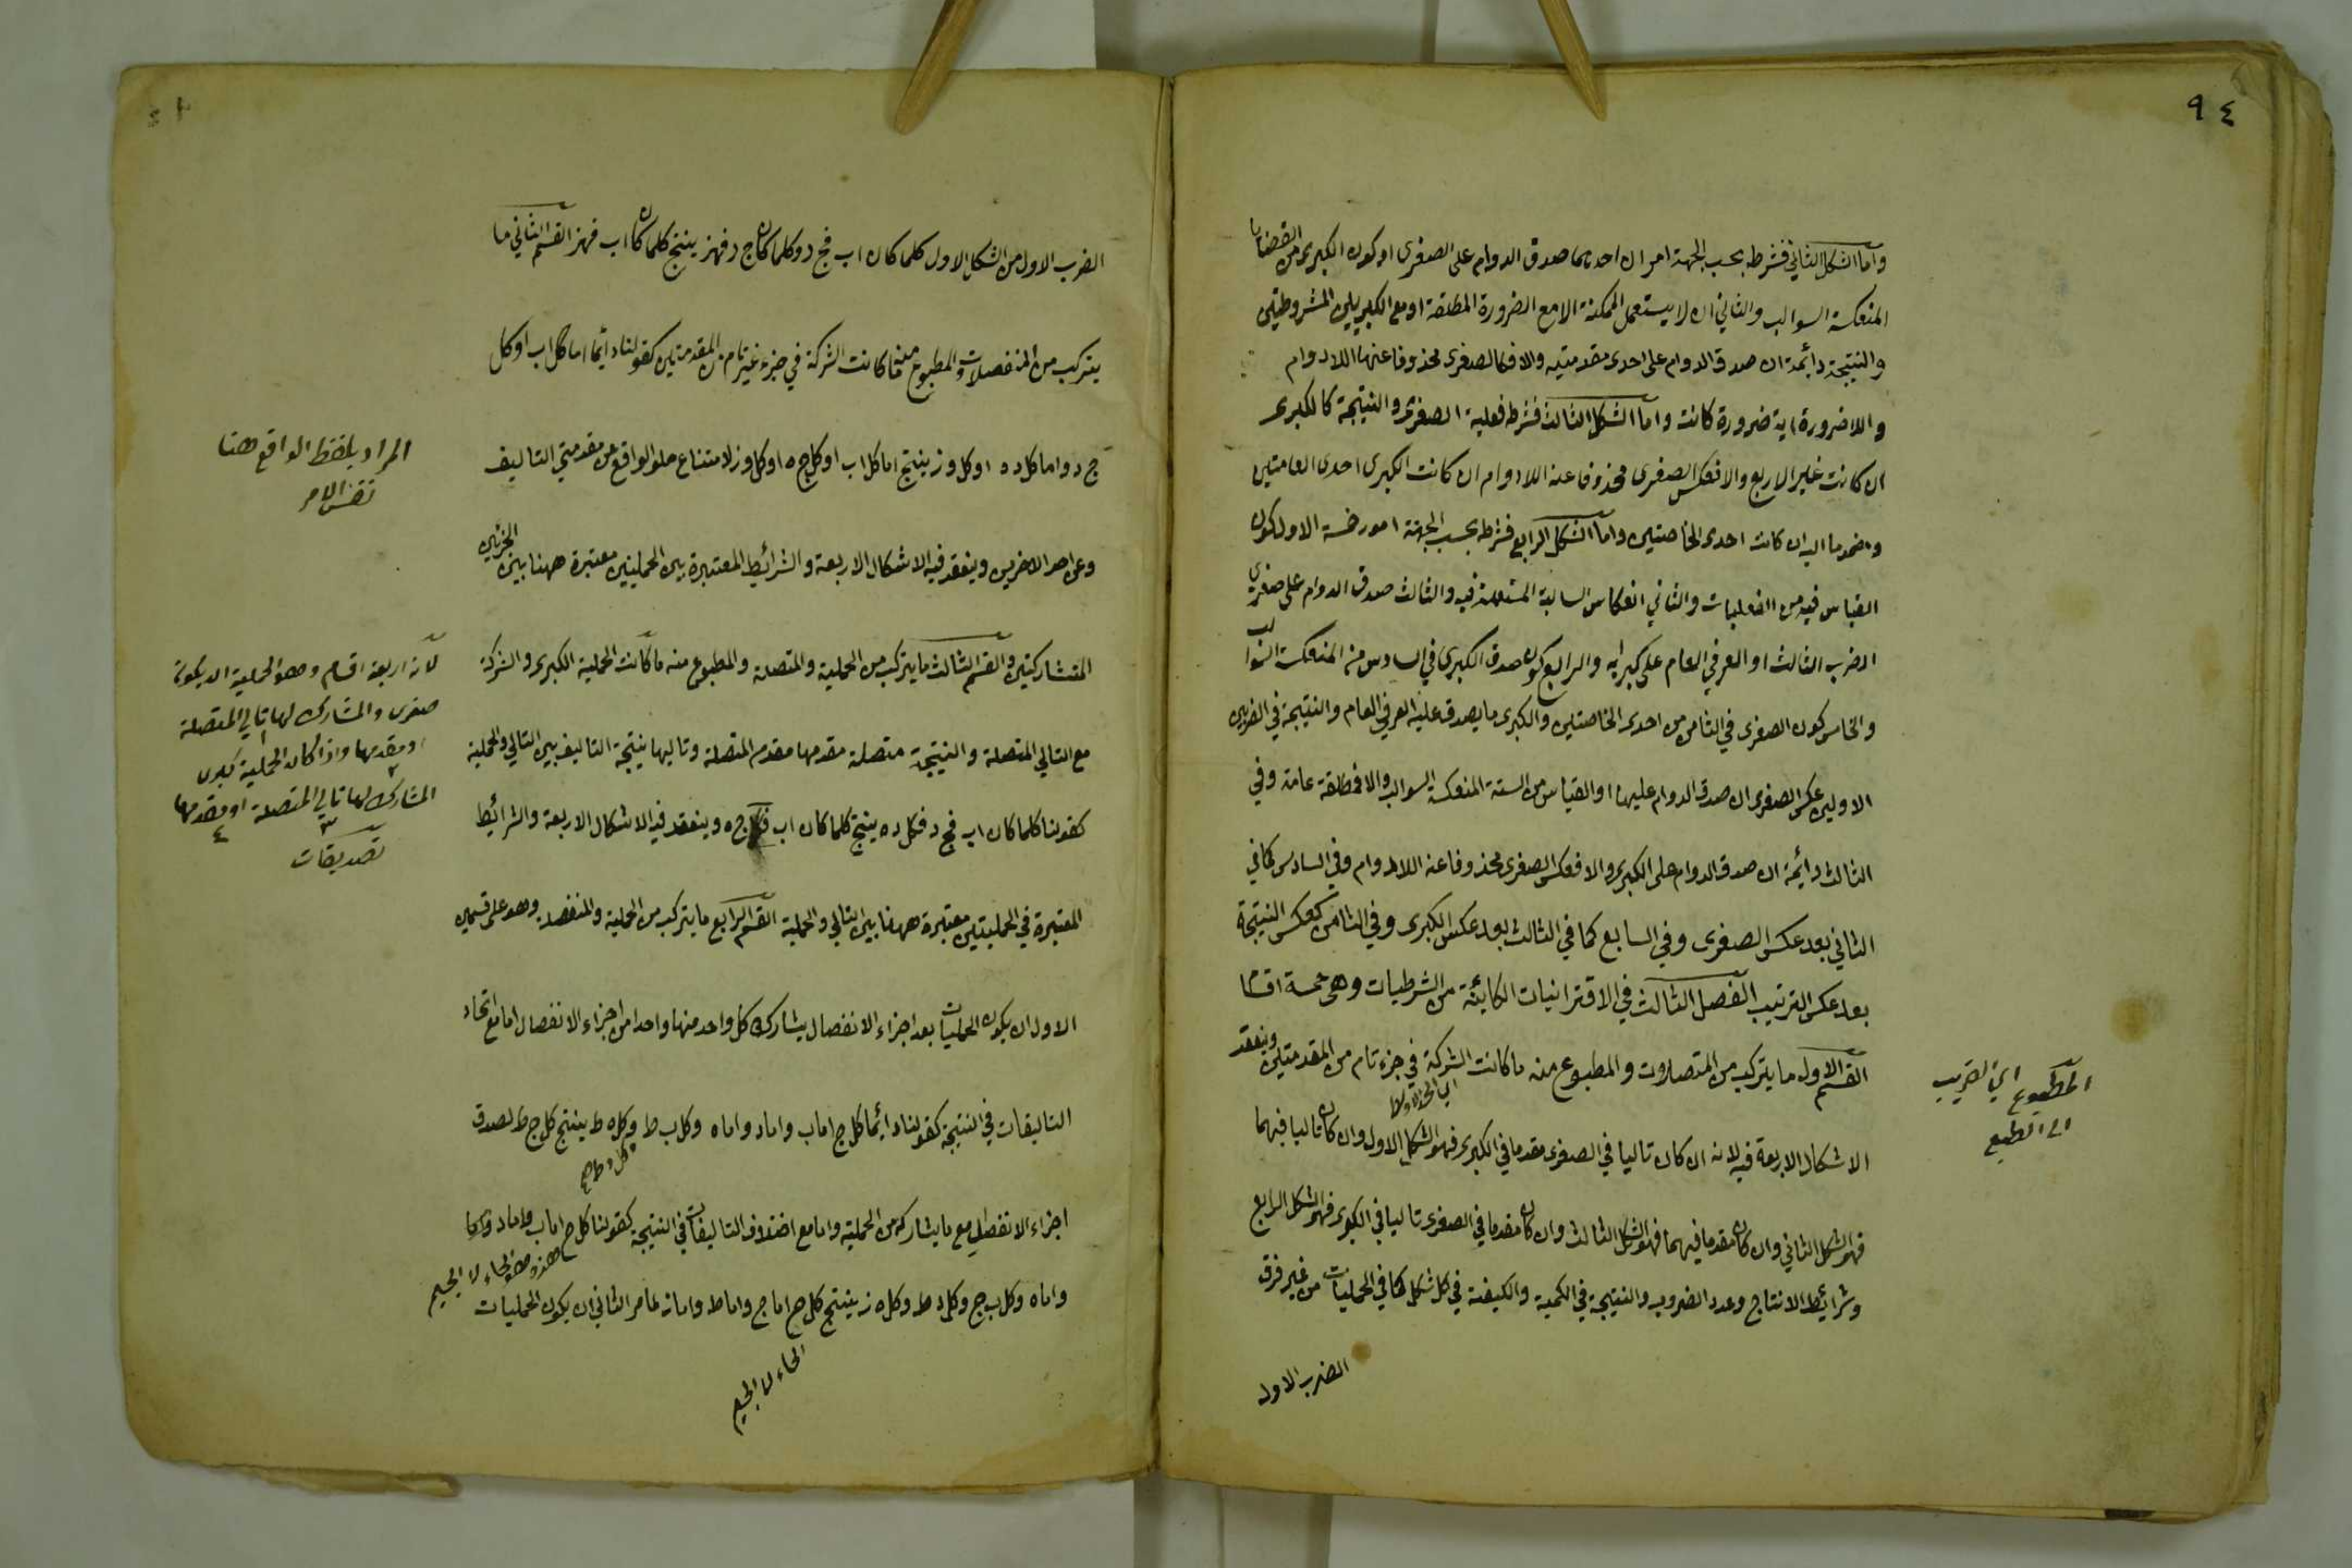 ٩٤
واما الشكل الثاني فشرطه بحسب الجهة امران احدهما صدق الدوام على الصغرى او كون الكبرى من القضايا
المنعكسة السوالب والثاني ان لا يستعمل الممكنة الا مع الضرورة المطلقة او مع الكبريين المشروطتين
والنتيجة دائمة ان صدق الدوام على احدى مقدمتيه والا فكالصغرى محذوفا عنها اللادوام
واللاضرورة اية ضرورة كانت واما الشكل الثالث فشرطه فعلية الصغرى والنتيجة كالكبرى
ان كانت غير الاربع والا فعكس الصغرى محذوفا عنه اللادوام ان كانت الكبرى احدى العامتين
ومضموما اليه ان كانت احدى الخاصتين واما الشكل الرابع فشرطه بحسب الجهة امور خمسة الاول كون
القياس فيه من الفعليات والثاني انعكاس السالبة المستعملة فيه والثالث صدق الدوام على صغرى
الضرب الثالث او العرفي العام على كبراه والرابع كون صدق الكبرى في السادس من المنعكسة السوالب
والخامس كون الصغرى في الثامن من احدى الخاصتين والكبرى ما يصدق عليه العرفي العام والنتيجة في الضربين
الاولين عكس الصغرى ان صدق الدوام عليها او القياس من الستة المنعكسة السوالب والا فمطلقة عامة وفي
الثالث دائمة ان صدق الدوام على الكبرى والا فعكس الصغرى محذوفا عنه اللادوام وفي السادس كما في
الثاني بعد عكس الصغرى وفي السابع كما في الثالث بعد عكس الكبرى وفي الثامن كعكس النتيجة
بعد عكس الترتيب الفصل الثالث في الاقترانيات الكائنة من الشرطيات وهي خمسة اقسام
القسم الاول ما يتركب من المتصلات والمطبوع منه ما كانت الشركة في جزء تام من المقدمتين وينعقد
الاشكال الاربعة فيه لانه ان كان تاليا في الصغرى مقدما في الكبرى فهو الشكل الاول وان كان تاليا فيهما
فهو الشكل الثاني وان كان مقدما فيهما فهو الشكل الثالث وان كان مقدما في الصغرى تاليا في الكبرى فهو الشكل الرابع
وشرائط الانتاج وعدد الضروب والنتيجة في الكمية والكيفية في كل شكل كما في الحمليات من غير فرق
الضرب الاول
المطبوع اي القريب
الى الطبع
الضرب الاول من الشكل الاول كلما كان اب فج د وكلما كان ج د فهز ينتج كلما كان اب فهز القسم الثاني ما
يتركب من المنفصلات والمطبوع منه ما كانت الشركة في جزء غير تام من المقدمتين كقولنا دائما اما كل اب او كل
ج د واما كل د ه او كل و ز ينتج اما كل اب او كل ج ه او كل و ز لامتناع خلو الواقع عن مقدمتي التاليف
وعن احد الاخرين وينعقد فيه الاشكال الاربعة والشرائط المعتبرة بين الحمليتين معتبرة ههنا بين الجزئين
المتشاركتين والقسم الثالث ما يتركب من الحملية والمتصلة والمطبوع منه ما كانت الحملية الكبرى والشركة
مع التالي المتصلة والنتيجة متصلة مقدمها مقدم المتصلة وتاليها نتيجة التاليف بين التالي والحملية
كقولنا كلما كان اب فج د وكل د ه ينتج كلما كان اب فكل ج ه وينعقد فيه الاشكال الاربعة والشرائط
المعتبرة في الحمليتين معتبرة ههنا بين التالي والحملية القسم الرابع ما يتركب من الحملية والمنفصلة وهو على قسمين
الاول ان يكون الحمليات بعدد اجزاء الانفصال يشارك كل واحد منها واحدا من اجزاء الانفصال اما مع اتحاد
التاليفات في النتيجة كقولنا دائما كل ج اما ب واما د واما ه وكل ب ط وكل ه ط ينتج كل ج ط لصدق
اجزاء الانفصال مع ما يشاركه من الحملية واما مع اختلاف التاليفات في النتيجة كقولنا كل ج اما ب واما د
واما ه وكل ب ج وكل د ط وكل ه ز ينتج كل ج اما ج واما ط واما ز لما مر الثاني ان يكون الحمليات
الحاء لا الجيم
المراد بلفظ الواقع هنا
نفس الامر
لانه اربعة اقسام وهو الحملية اما ان يكون
صغرى والمشارك لها تالي المتصلة
او مقدمها واذا كان الحملية كبرى
المشارك لها تالي المتصلة او مقدمها
تصديقات